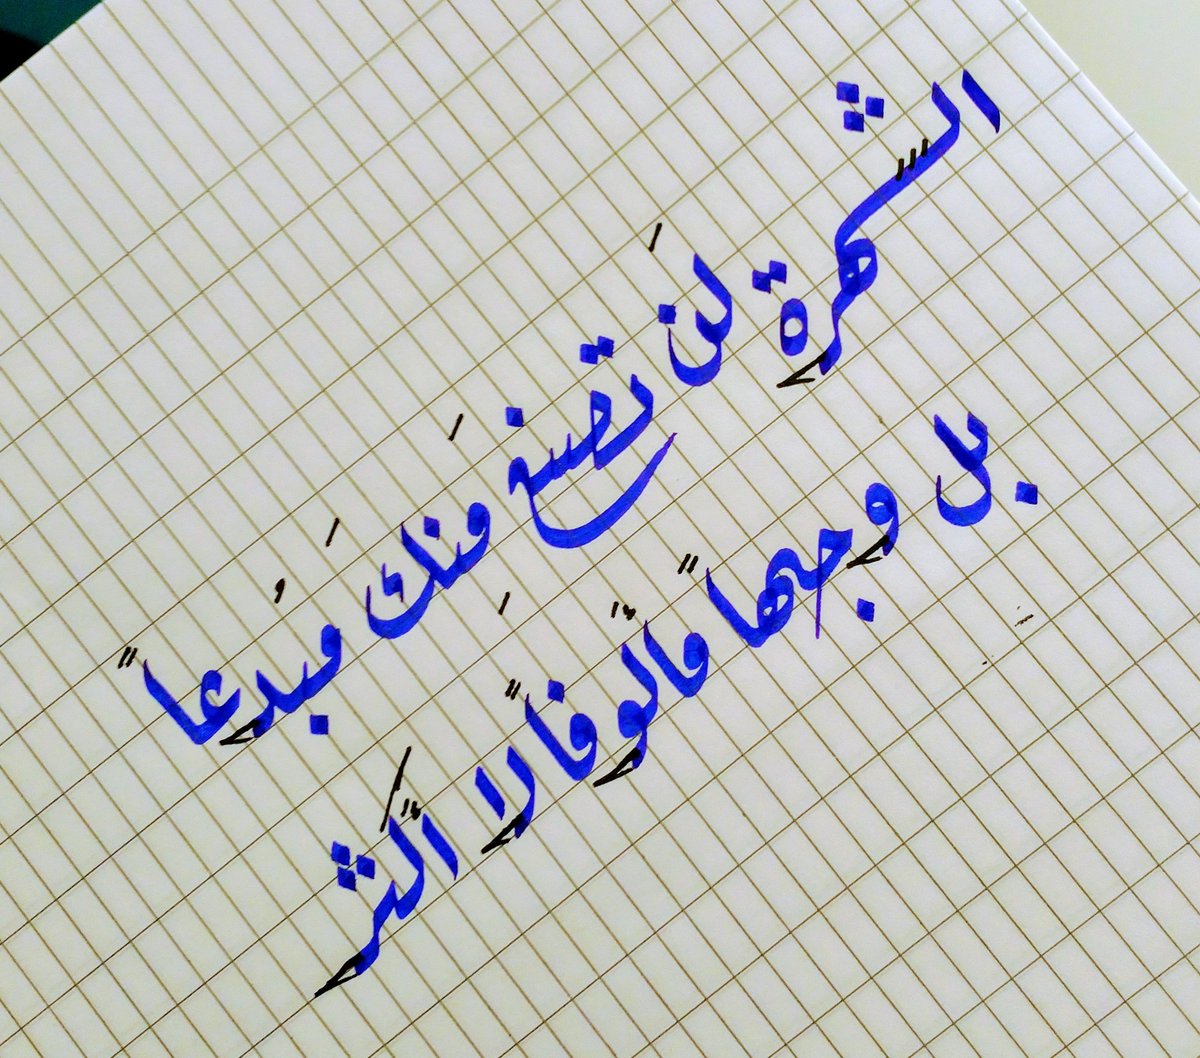 الشهرة لَن تصنعَ منكَ مُبدعاً
بل وجهاً مَألوفاً لا أكثر